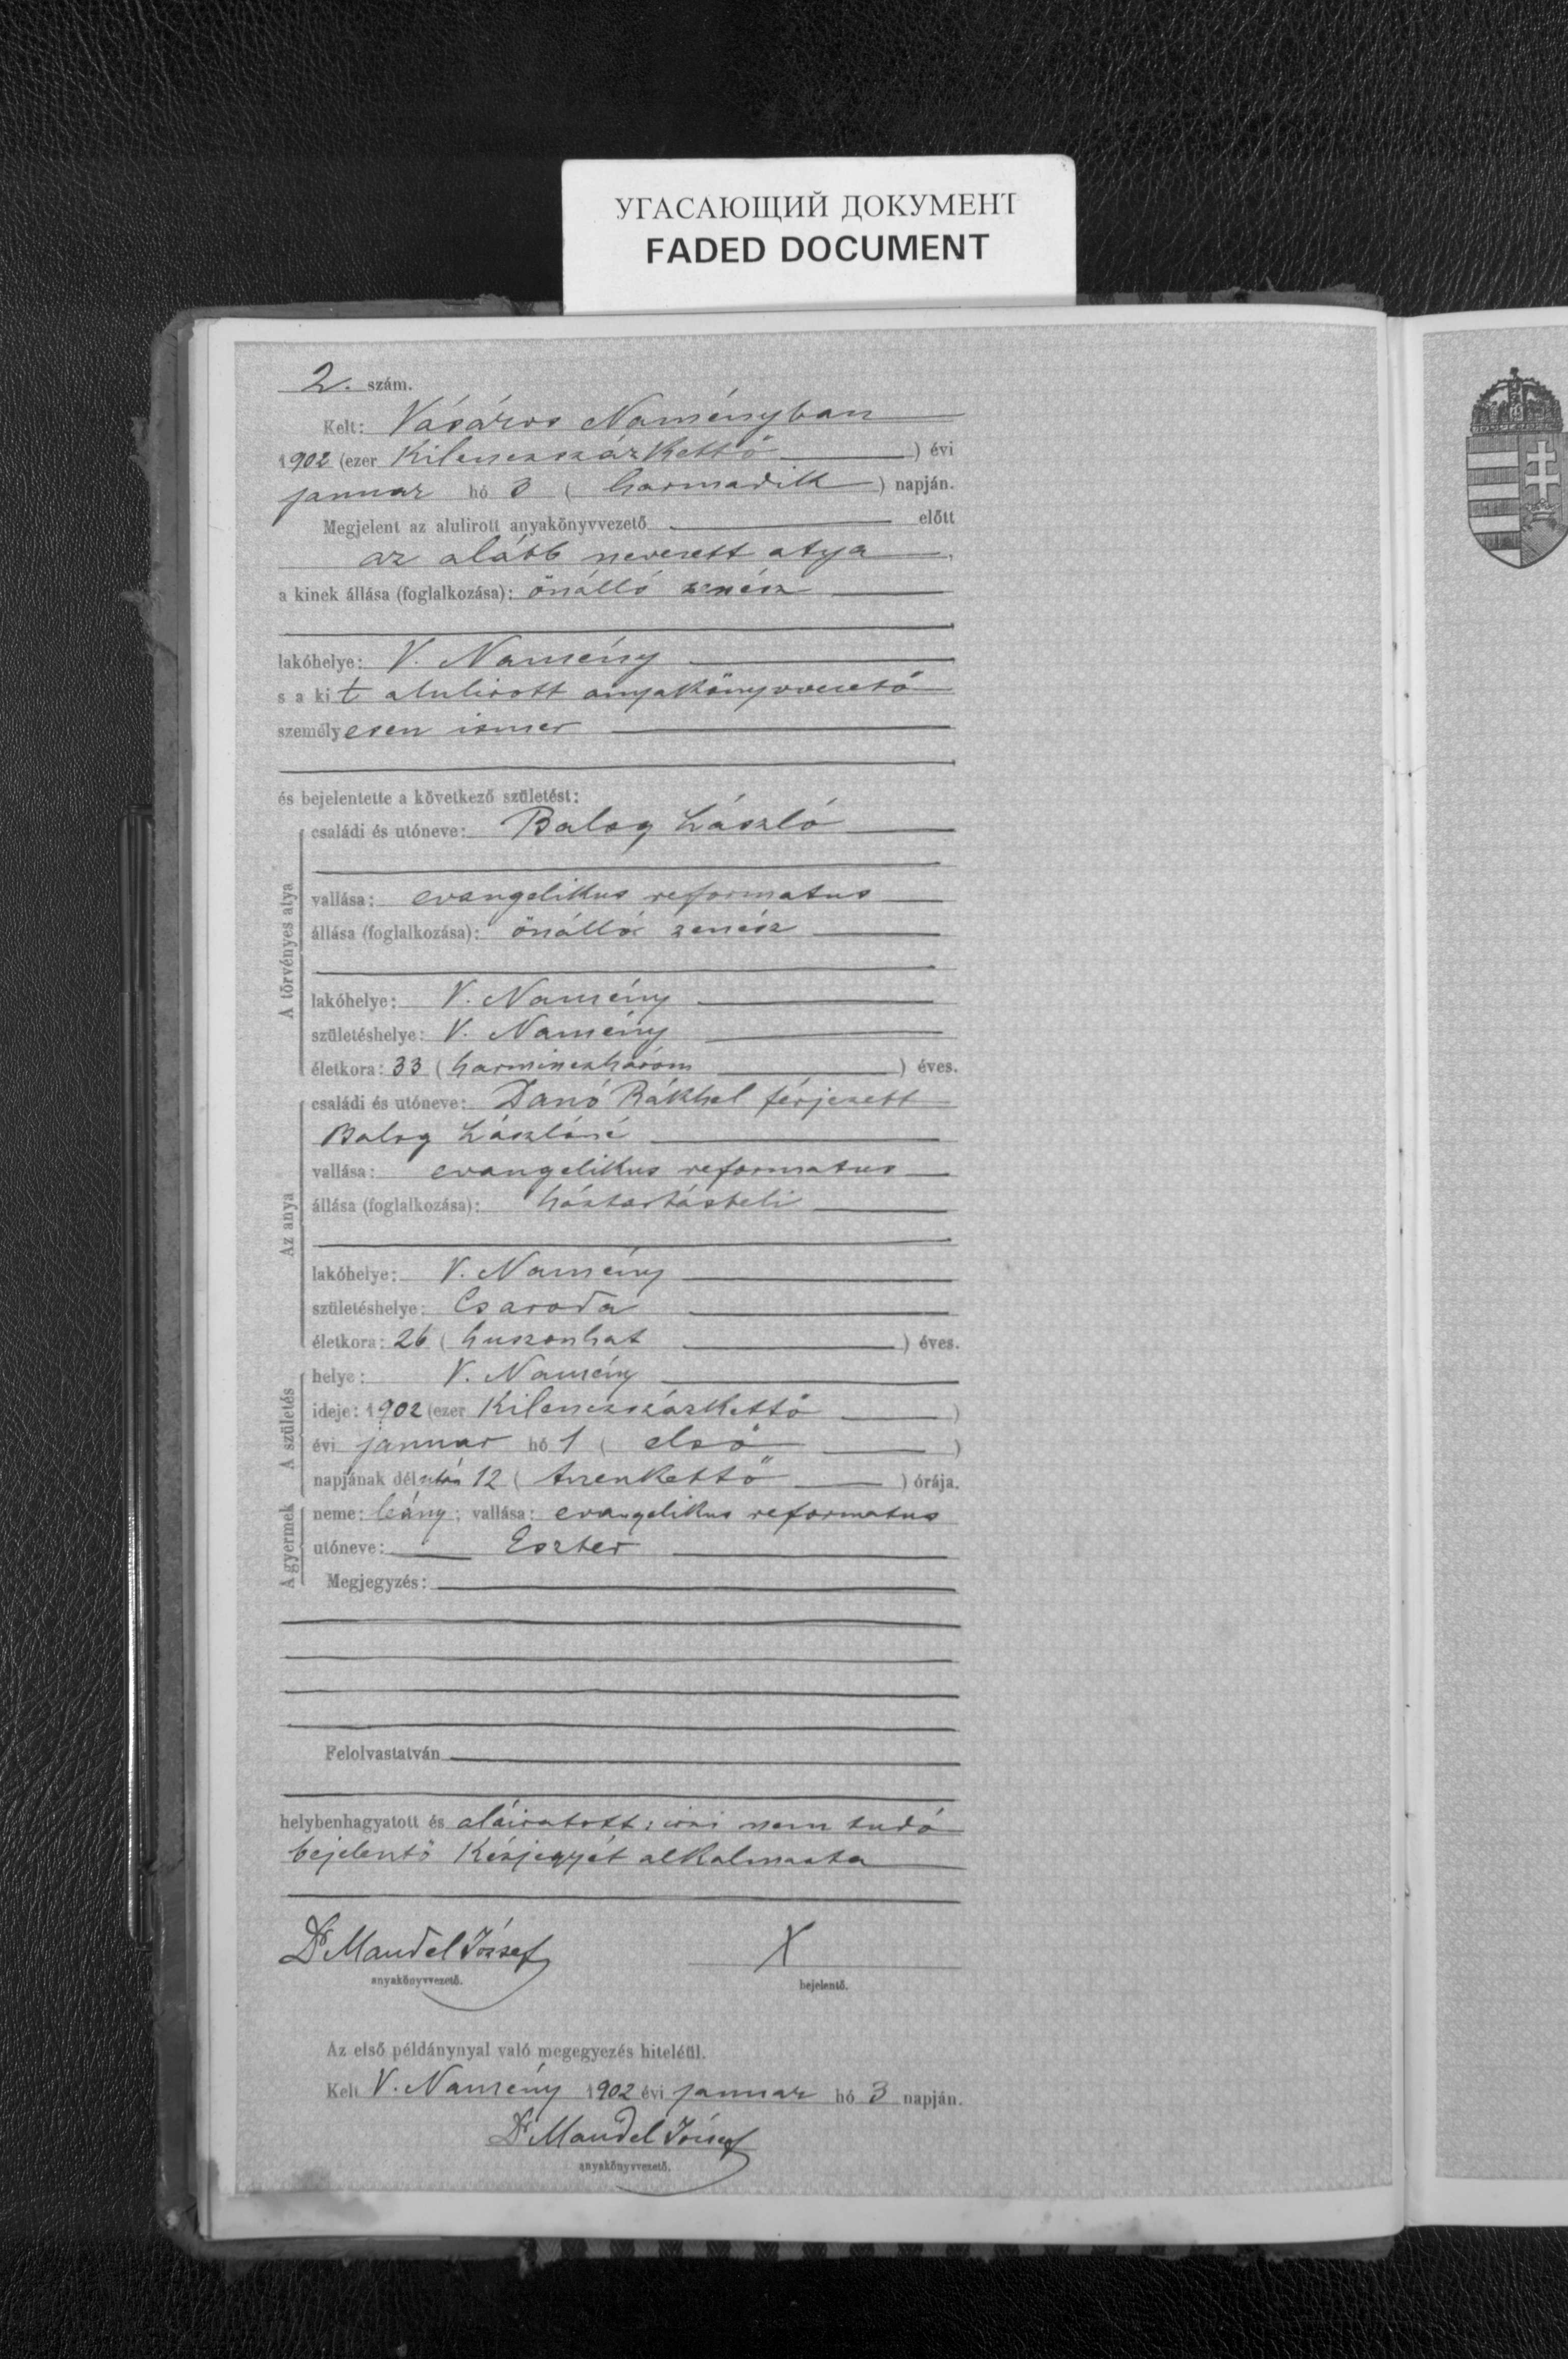 УГАСАЮЩИЙ ДОКУМЕНТ
FADED DOCUMENT
2. szám.
Kelt: Vásáros Naményban
1902 (ezer Kilenczszázkettő) évi
januar hó 3 (harmadik) napján.
Megjelent az alulirott anyakönyvvezető előtt
az alább nevezett atya,
a kinek állása (foglalkozása): önálló zenész
lakóhelye: V. Namény
s a kit alulirott anyakönyvvezető
személyesen ismer
és bejelentette a következő születést:
A törvényes atya
családi és utóneve: Balog László
vallása: evangelikus reformatus
állása (foglalkozása): önálló zenész
lakóhelye: V. Namény
születéshelye: V. Namény
életkora: 33 (harminczhárom) éves.
Az anya
családi és utóneve: Danó Rákhel férjezett
Balog Lászlóné
vallása: evangelikus reformatus
állása (foglalkozása): háztartásbeli
lakóhelye: V. Namény
születéshelye: Csaroda
életkora: 26 (huszonhat) éves.
A születés
helye: V. Namény
ideje: 1902 (ezer Kilenczszázkettő)
évi januar hó 1 (első)
napjának délután 12 (tizenkettő) órája.
A gyermek
neme: leány; vallása: evangelikus reformatus
utóneve: Eszter
Megjegyzés:
Felolvastatván
helybenhagyatott és aláiratott; irni nem tudó
bejelentő kézjegyét alkalmazta
Dr Mandel József X
anyakönyvvezető. bejelentő.
Az első példánynyal való megegyezés hiteléül.
Kelt V. Namény 1902 évi januar hó 3 napján.
Dr Mandel József
anyakönyvvezető.